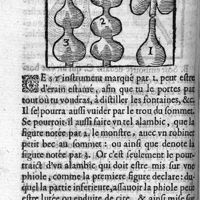 3
2
1
CEst instrument marqué par 1, peut estre
d'erain estaué, afin que tu le portes par
tout où tu voudras, à distiller les fontaines, &c.
Il se pourra aussi vuider par le trou du sommet.
Se pourroit-il aussi faire vn tel alambic, que la
figure notée par 2, le monstre, auec vn robinet
petit bec au sommet: ou ainsi que denote la
figure notée par 3. Or c'est seulement le pour-
traict d'vn alambic qui doit estre mis sur vne
phiole, comme la premiere figure declare: du-
quel la partie inferieure, assauoir la phiole peut
estre lutée ou enduite de cire, & ainsi mise